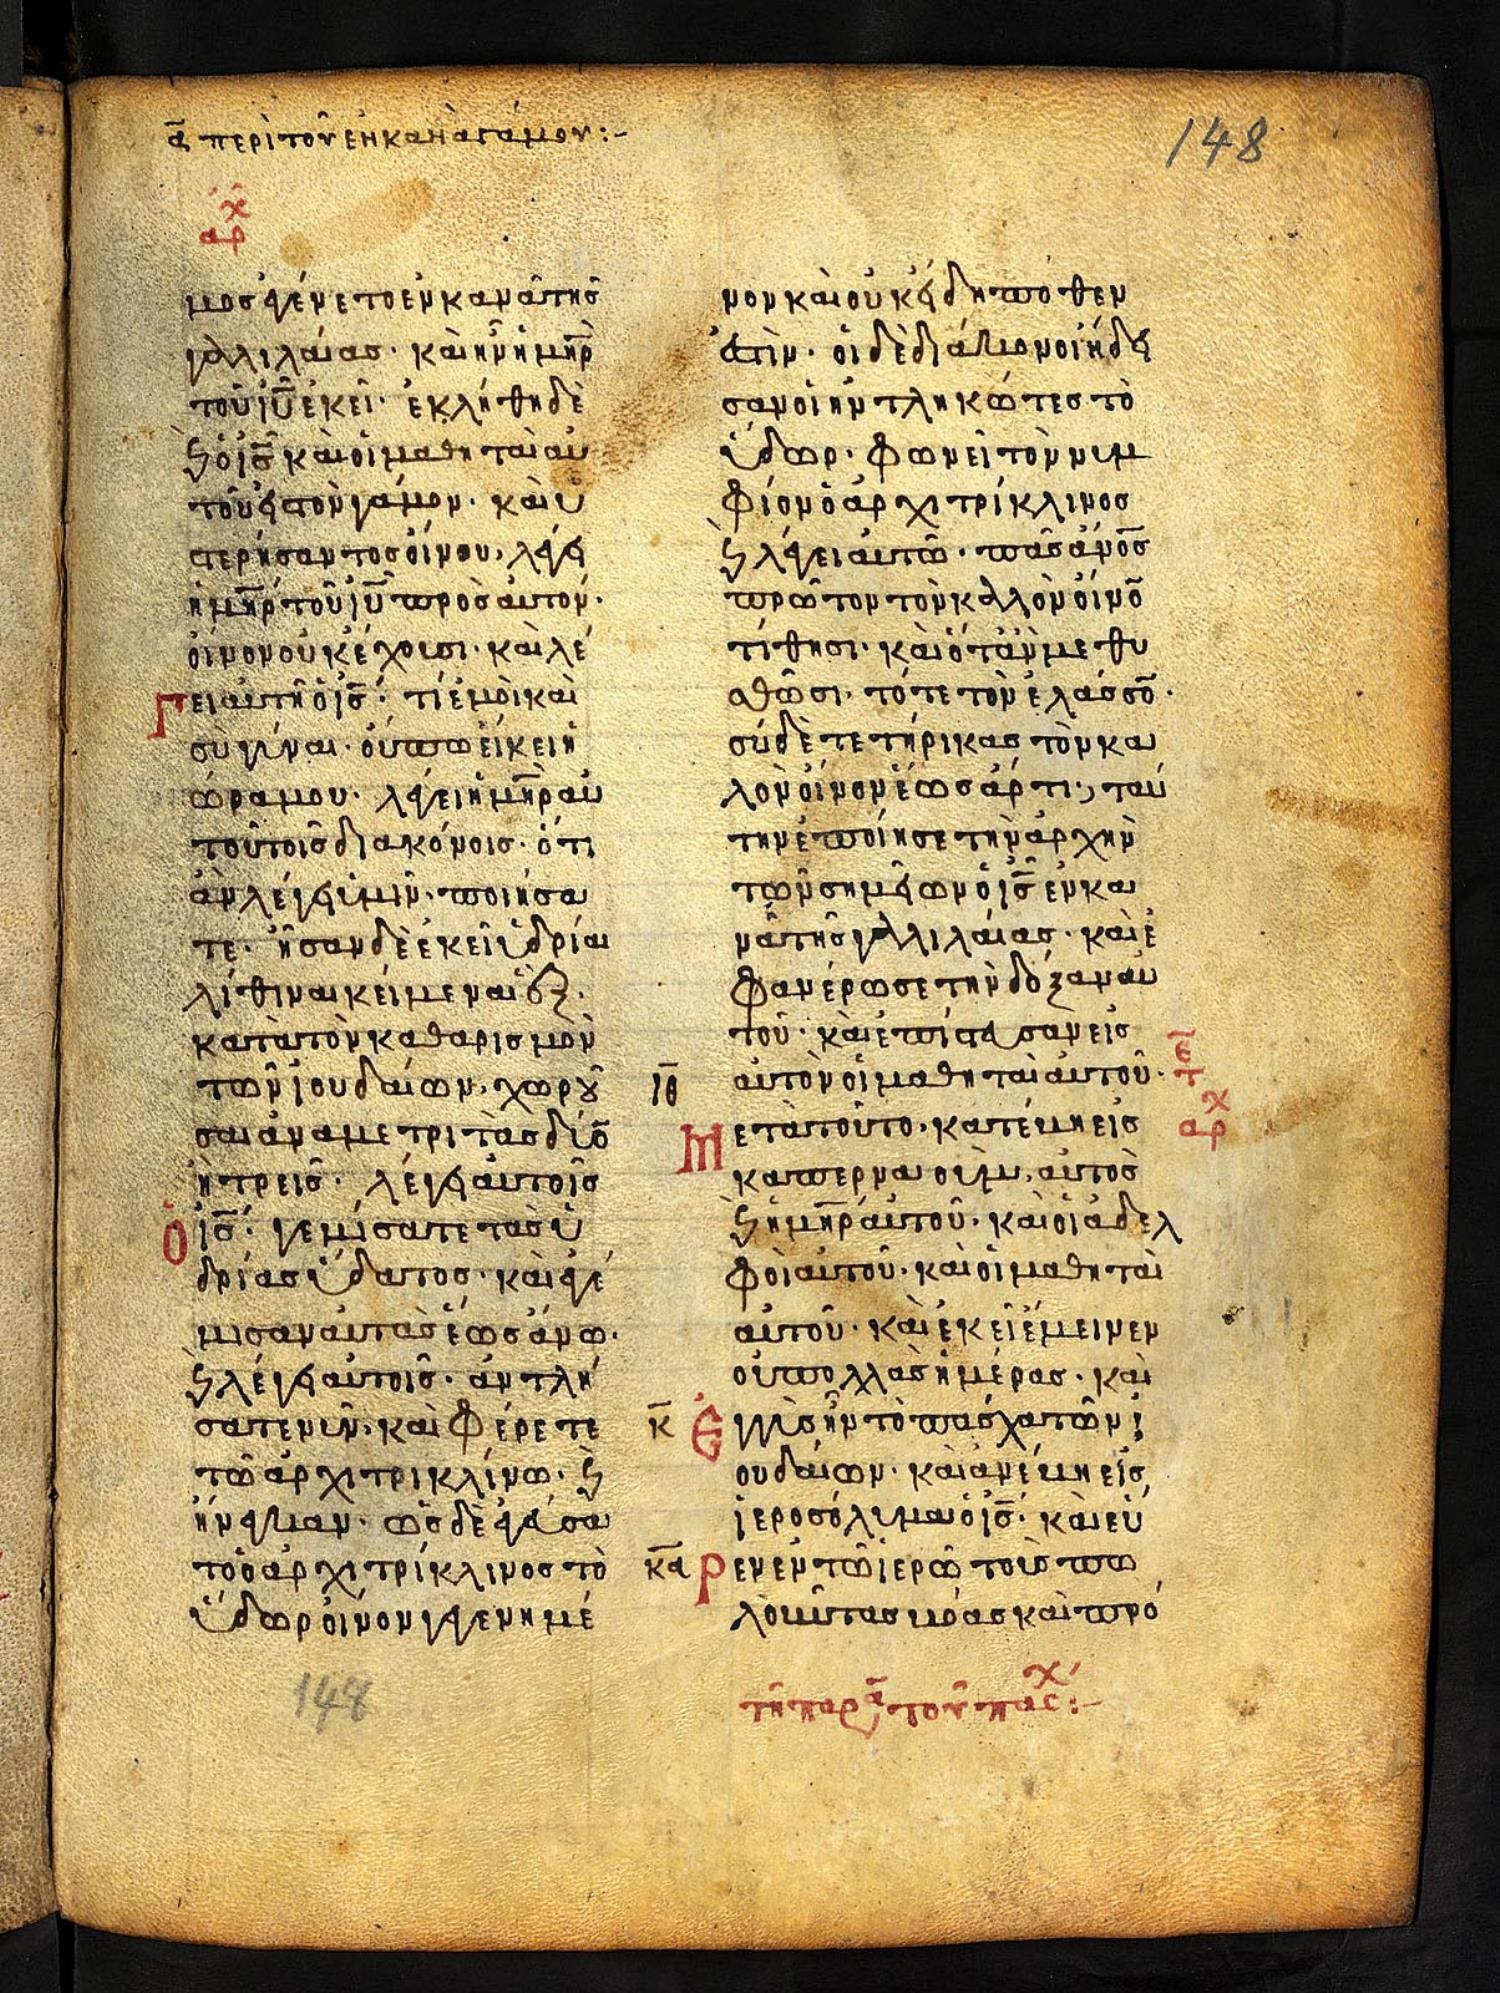 α̅ περὶ τοῦ ἐν κανᾶ γάμου :-
148
ἀρχ
μος ἐγένετο ἐν κανᾶ τῆς
γαλιλαίας· καὶ ἦν ἡ μη̅ρ
τοῦ ιυ̅ ἐκεῖ· ἐκλήθη δὲ
ϗ ὁ ισ̅ καὶ οἱ μαθηταὶ αὐ
τοῦ εἰς τὸν γάμον· καὶ ὑ
στερήσαντος οἴνου, λέγει
ἡ μη̅ρ τοῦ ιυ̅ πρὸς αὐτόν·
οἶνον οὐκ ἔχουσι· καὶ λέ
γει αὐτῆ ὁ ισ̅· τί ἐμοὶ καὶ
σὺ γύναι· οὔπω ἥκει ἡ
ὥρα μου· λέγει ἡ μη̅ρ αὐ
τοῦ τοῖς διακόνοις· ὅτι
ἂν λέγει ὑμῖν· ποιήσα
τε· ἦσαν δὲ ἐκεῖ ὑδρίαι
λίθιναι κείμεναι ἓξ·
κατὰ τὸν καθαρισμὸν
τῶν ἰουδαίων, χωροῦ
σαι ἀνὰ μετριτὰς δύο
ἢ τρεῖς· λέγει αὐτοῖς
ὁ ισ̅· γεμίσατε τὰς ὑ
δρίας ὕδατος· καὶ ἐγέ
μισαν αὐτὰς ἕως ἄνω·
ϗ λέγει αὐτοῖς· ἀντλή
σατε νῦν, καὶ φέρετε
τῶ ἀρχιτρικλίνω· ϗ
ἤνεγκαν· ὡς δὲ ἐγεύσα
το ὁ ἀρχιτρίκλινος τὸ
ὕδωρ οἶνον γεγενημέ
148
νον καὶ οὐκ ἤδει πόθεν
ἐστίν· οἱ δὲ διάκονοι ἤδει
σαν οἱ ἠντληκότες τὸ
ὕδωρ· φωνεῖ τὸν νυμ
φίον ὁ ἀρχιτρίκλινος
ϗ λέγει αὐτῶ· πᾶς ἄνο̅ς
πρῶτον τὸν καλὸν οἶνο̅
τίθησι· καὶ ὅταν με θυ
σθῶσι· τότε τὸν ἐλάσσο̅·
σὺ δὲ τετήρικας τὸν κα
λὸν οἶνον ἕως ἄρτι· ταύ
την ἐποίησε τὴν ἀρχὴν
τῶν σημείων ὁ ισ̅ ἐν κα
νᾶ τῆς γαλιλαίας· καὶ ἐ
φανέρωσε τὴν δόξαν αὐ
τοῦ· καὶ ἐπίστευσαν εἰς
αὐτὸν οἱ μαθηταὶ αὐτοῦ· τε̅
ιθ̅ Μετὰ τοῦτο· κατέβη εἰς ἀρχ
καπερναούμ, αὐτὸς
ϗ ἡ μη̅ρ αὐτοῦ· καὶ οἱ ἀδελ
φοὶ αὐτοῦ· καὶ οἱ μαθηταὶ
αὐτοῦ· καὶ ἐκεῖ ἔμεινεν
οὐ πολλὰς ἡμέρας· καὶ
κ̅ Ἐγγὺς ἦν τὸ πάσχα τῶν ἰ
ουδαίων· καὶ ἀνέβη εἰς
ἱεροσόλυμα ὁ ισ̅· καὶ εὗ
κα̅ Ρεν ἐν τῶ ἱερῶ τοὺς πω
λοῦντας βόας καὶ πρό
τῆ παρα τοῦ πάσχ :-